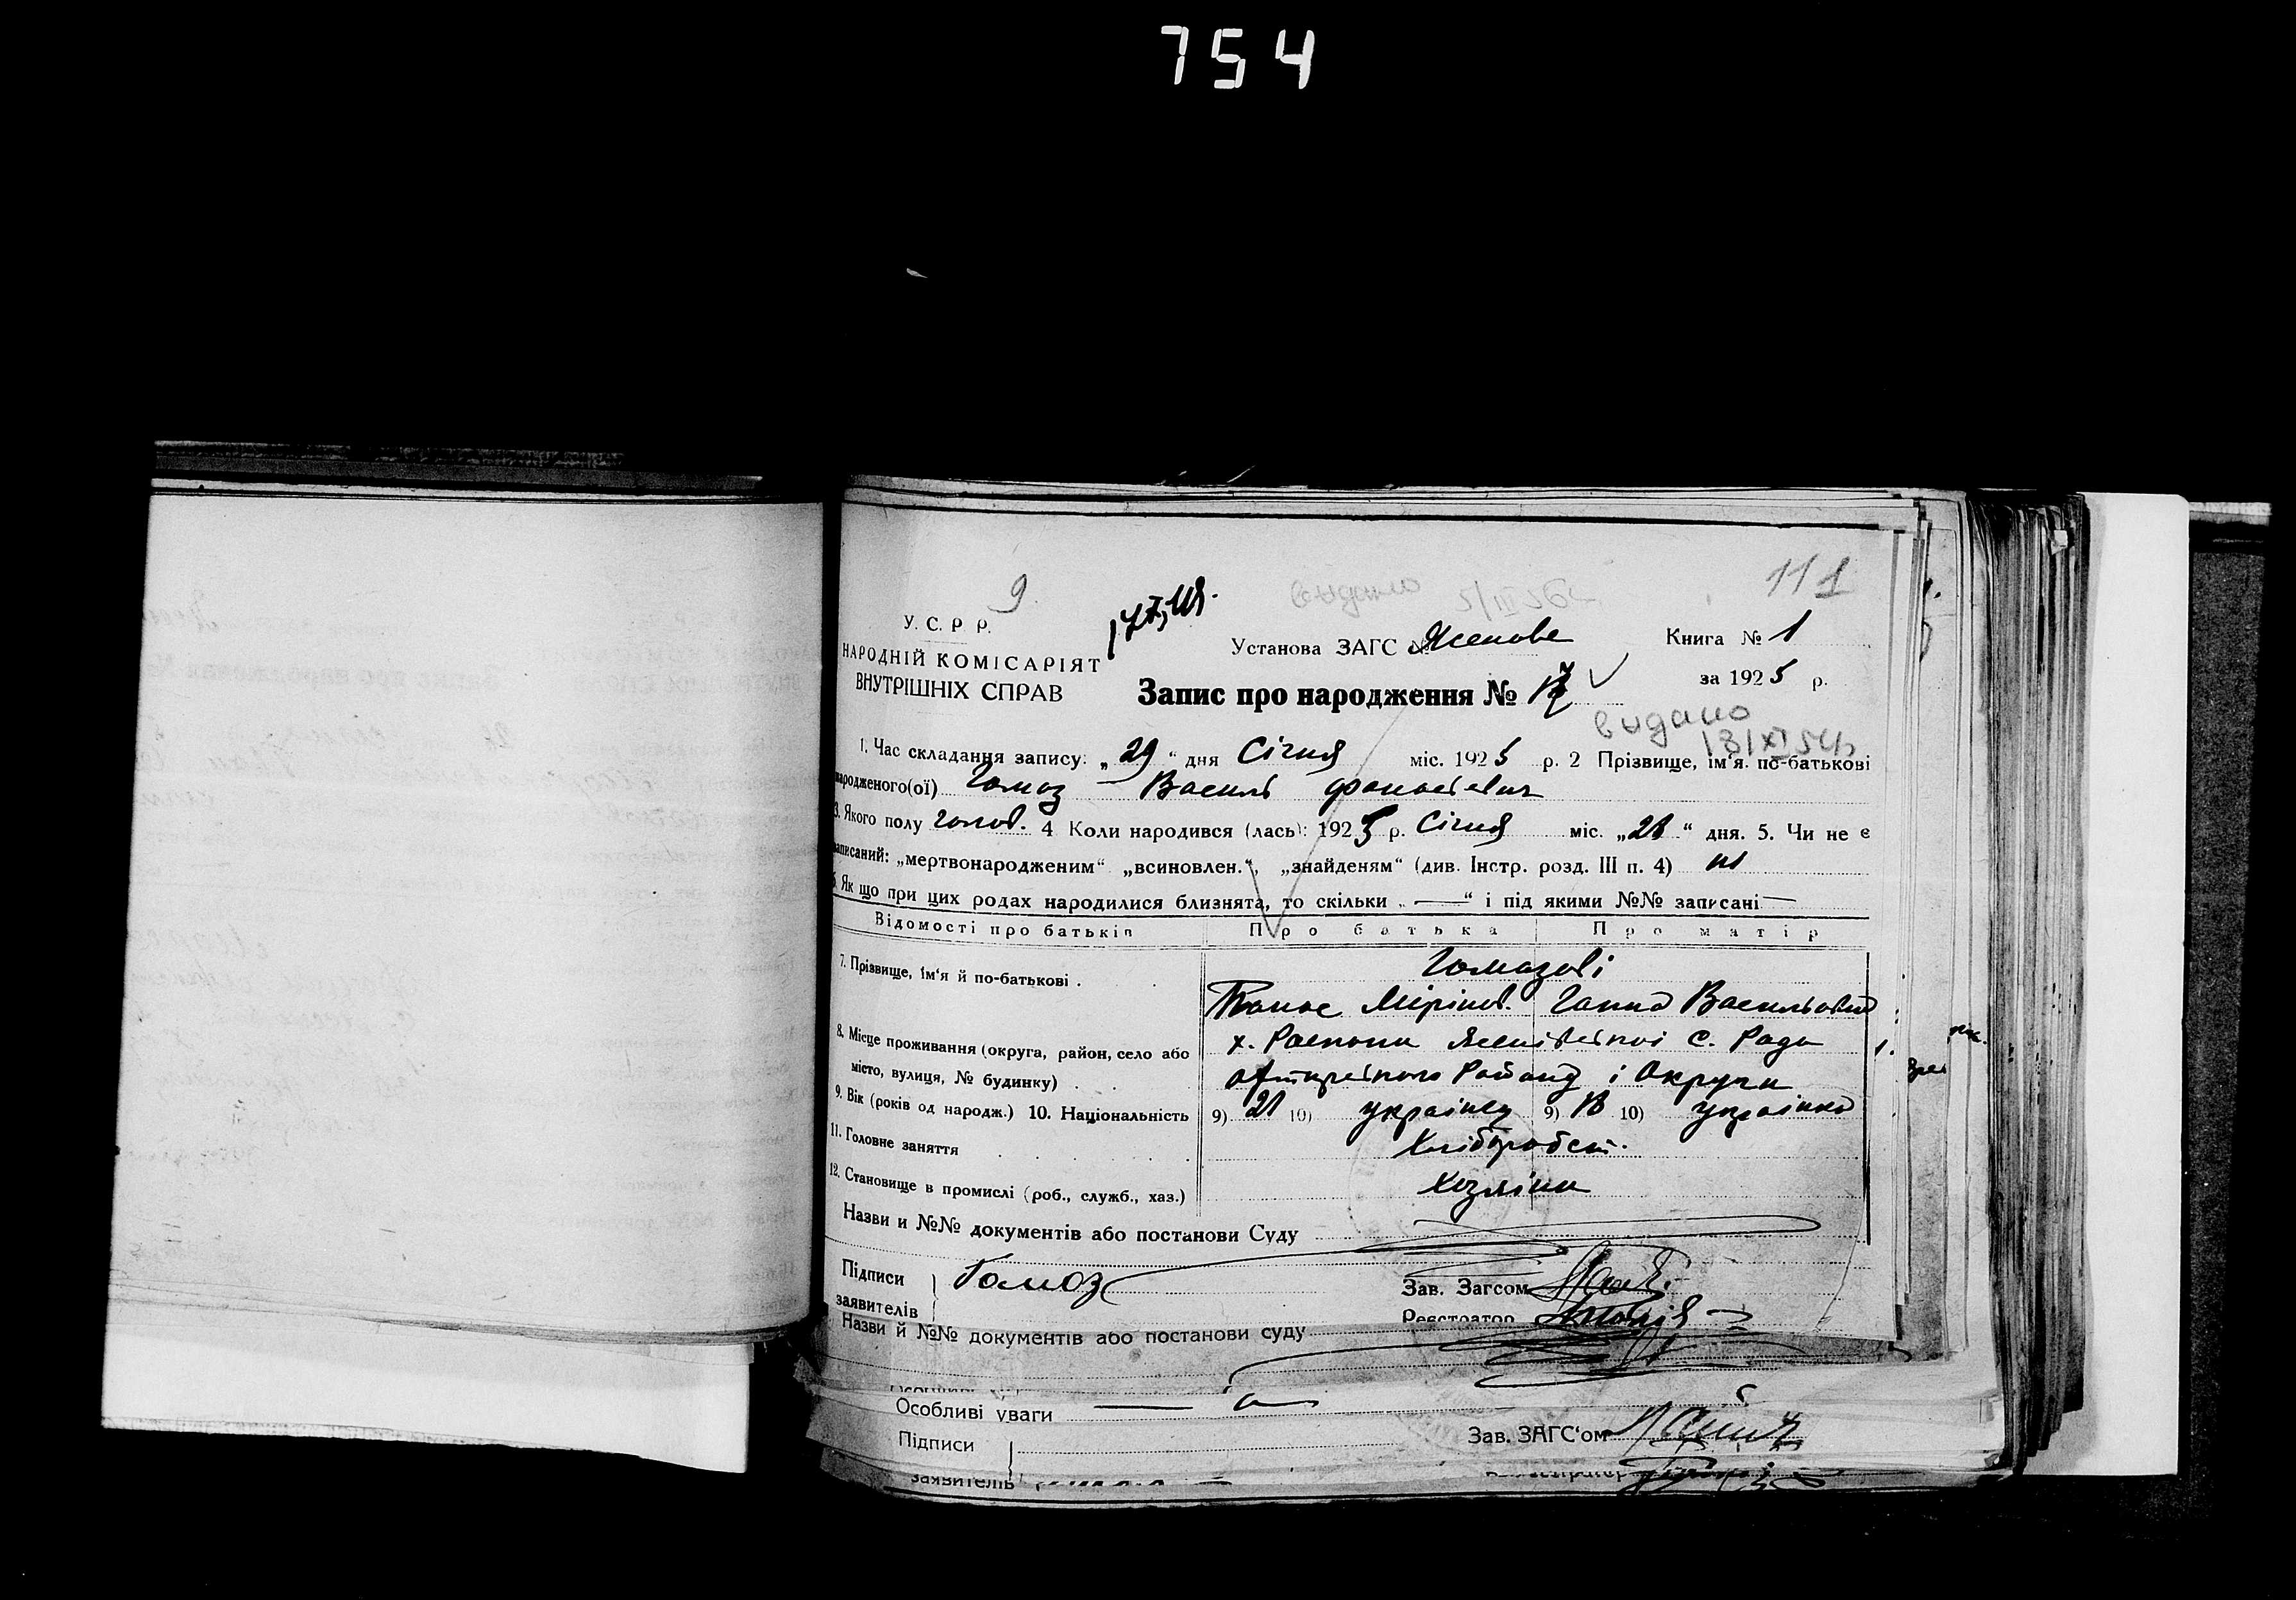 754
9
видано 5/III 56
111
У. С. Р. Р.
НАРОДНІЙ КОМІСАРІЯТ
ВНУТРІШНІХ СПРАВ
Установа ЗАГС № Ясенове
Книга № 1
за 1925 р.
Запис про народження № 17
видано
1. Час складання запису: „29“ дня Січня міс. 1925 р. 2 Прізвище, ім'я. по-батькові
народженого(ої) Гомоз Василь Фанасієвич
3. Якого полу голов. 4 Коли народився (лась): 1925 р. Січня міс. „28“ дня. 5. Чи не є
записаний: „мертвонародженим“ „всиновлен.“, „знайденям“ (див. Інстр. розд. III п. 4) ні
6. Як що при цих родах народилися близнята, то скільки „—“ і під якими №№ записані —
Відомості про батьків Про батька Про матір
7. Прізвище, ім'я й по-батькові . Гомозові
Панас Ганна Васильовна
8. Місце проживання (округа, район, село або х. С. Ради
місто, вулиця, № будинку) . . Району і Округи
9. Вік (років од народж.) 10. Національність 9) 21 10) українец 9) 18 10) українка
11. Головне заняття Хліборобст.
12. Становище в промислі (роб., служб., хаз.) Хозяіни
Назви и №№ документів або постанови Суду
Підписи
заявителів Гомоз
Зав. Загсом
Реєстратор
Назви й №№ документів або постанови суду
Особливі уваги
Підписи
заявителів
Зав. ЗАГС'ом